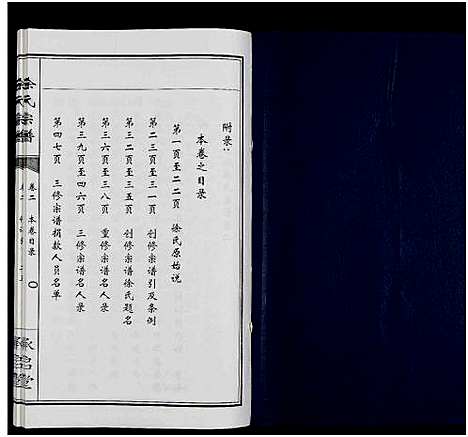 附录：
本卷之目录
第一页至二二页 徐氏原始说
第二三页至三一页 创修宗谱引及条例
第三二页至三五页 创修宗谱徐氏题名
第三六页至三八页 重修宗谱名人录
第三九页至四六页 三修宗谱名人录
第四七页 三修宗谱捐款人员名单
徐氏宗谱
卷二 本卷目录